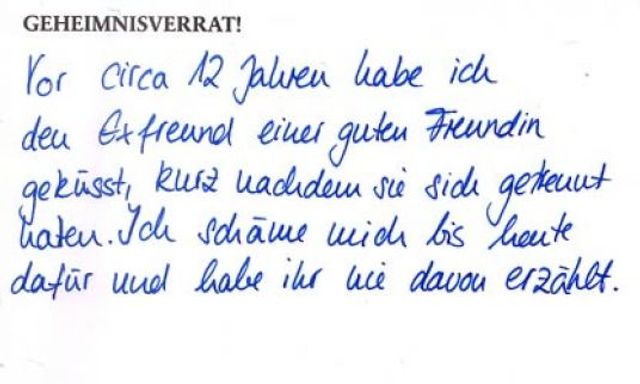 GEHEIMNISVERRAT!
Vor circa 12 Jahren habe ich
den Exfreund einer guten Freundin
geküsst, kurz nachdem sie sich getrennt
haten. Ich schäme mich bis heute
dafür und habe ihr nie davon erzählt.